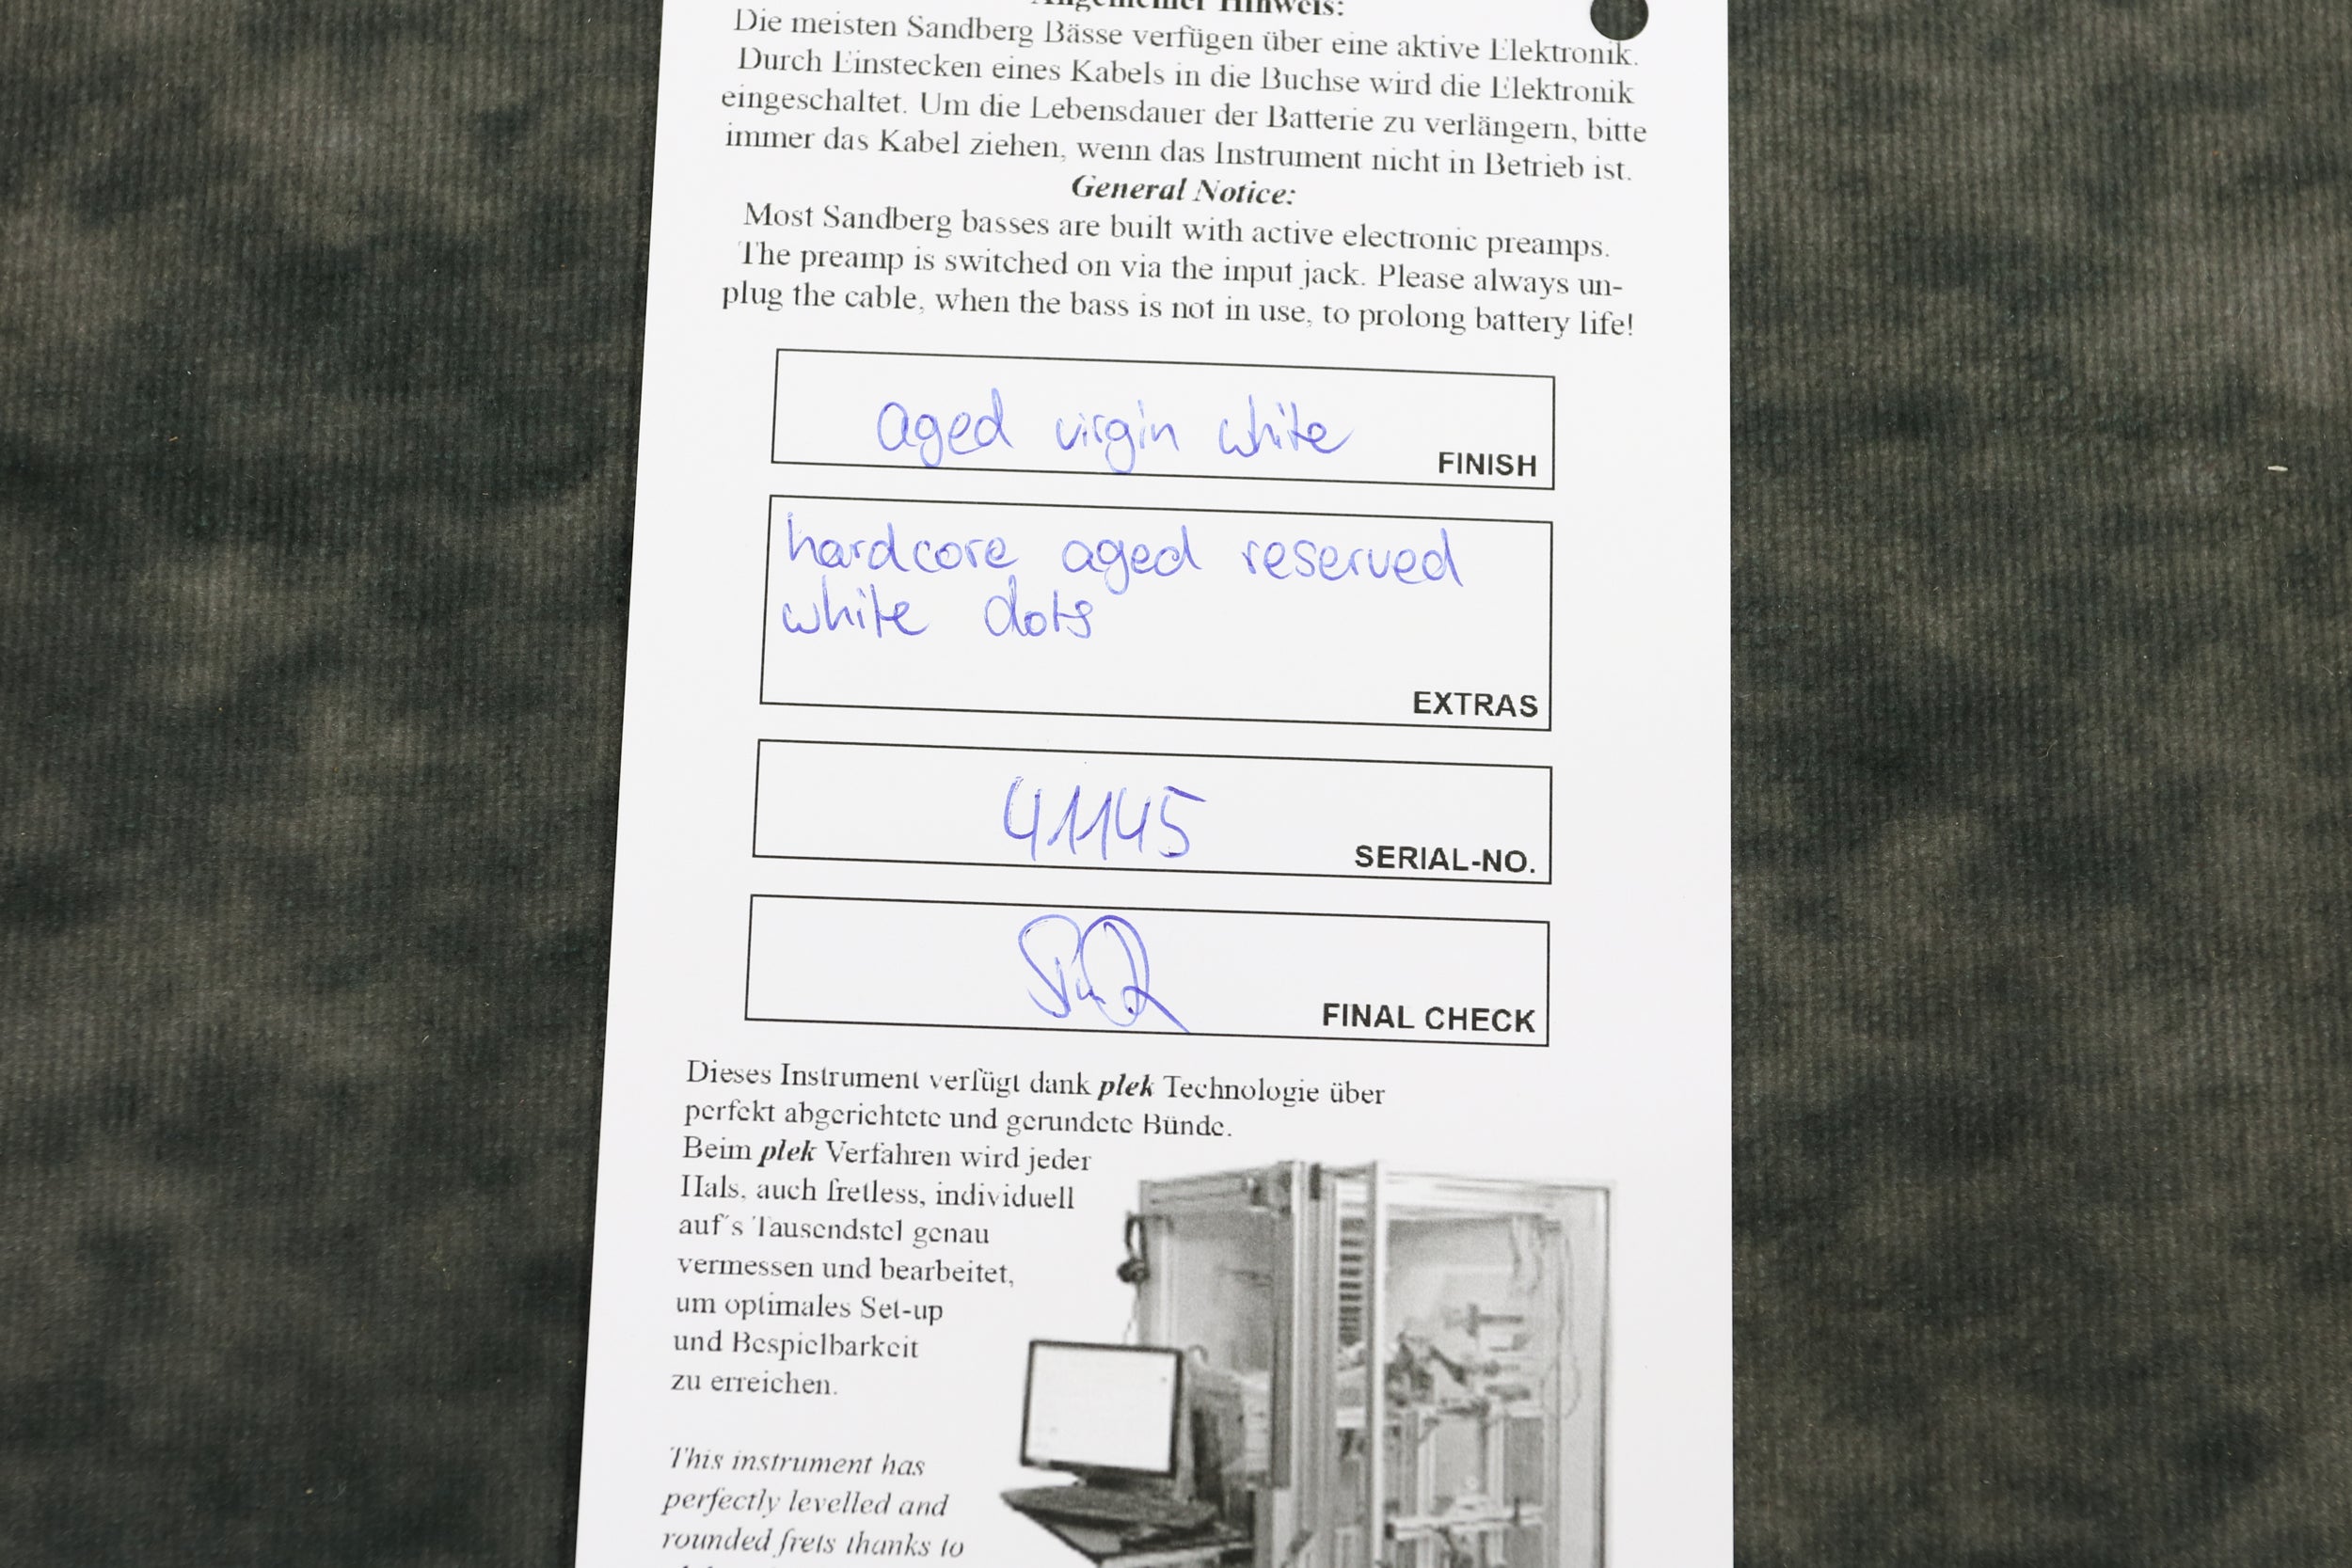 Allgemeiner Hinweis:
Die meisten Sandberg Bässe verfügen über eine aktive Elektronik.
Durch Einstecken eines Kabels in die Buchse wird die Elektronik
eingeschaltet. Um die Lebensdauer der Batterie zu verlängern, bitte
immer das Kabel ziehen, wenn das Instrument nicht in Betrieb ist.
General Notice:
Most Sandberg basses are built with active electronic preamps.
The preamp is switched on via the input jack. Please always un-
plug the cable, when the bass is not in use, to prolong battery life!
aged virgin white
FINISH
hardcore aged reserved
white dots
EXTRAS
41145
SERIAL-NO.
FINAL CHECK
Dieses Instrument verfügt dank plek Technologie über
perfekt abgerichtete und gerundete Bünde.
Beim plek Verfahren wird jeder
Hals, auch fretless, individuell
auf´s Tausendstel genau
vermessen und bearbeitet,
um optimales Set-up
und Bespielbarkeit
zu erreichen.
This instrument has
perfectly levelled and
rounded frets thanks to